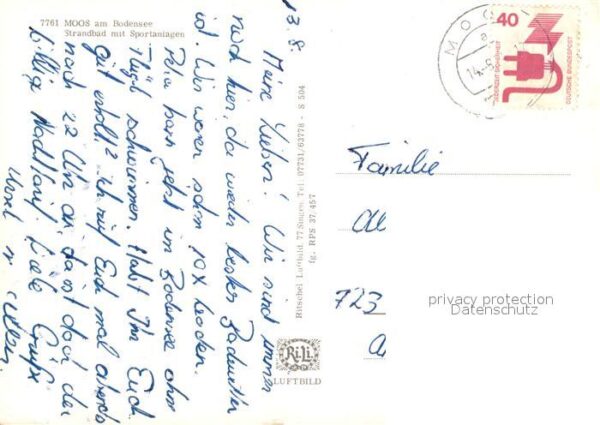 7761 MOOS am Bodensee
Strandbad mit Sportanlagen
13.8.
Meine Lieben! Wir sind immer
noch hier, da wieder bestes Badewetter
ist. Wir waren schon 10x baden.
Petra kann jetzt im Bodensee ohne
Flügel schwimmen. Habt Ihr Euch
gut erholt? Ich ruf Euch mal abends
nach 22 Uhr an, da ist doch der
billige Nachttarif. Liebe Grüße
Ritschel Luftbild, 77 Singen, Tel. 07731/63778 - S 504
fg. RPS 37.457
RiLi
LUFTBILD
MOOS
14.-8.
40
JEDERZEIT SICHERHEIT
DEUTSCHE BUNDESPOST
Familie
723
privacy protection
Datenschutz